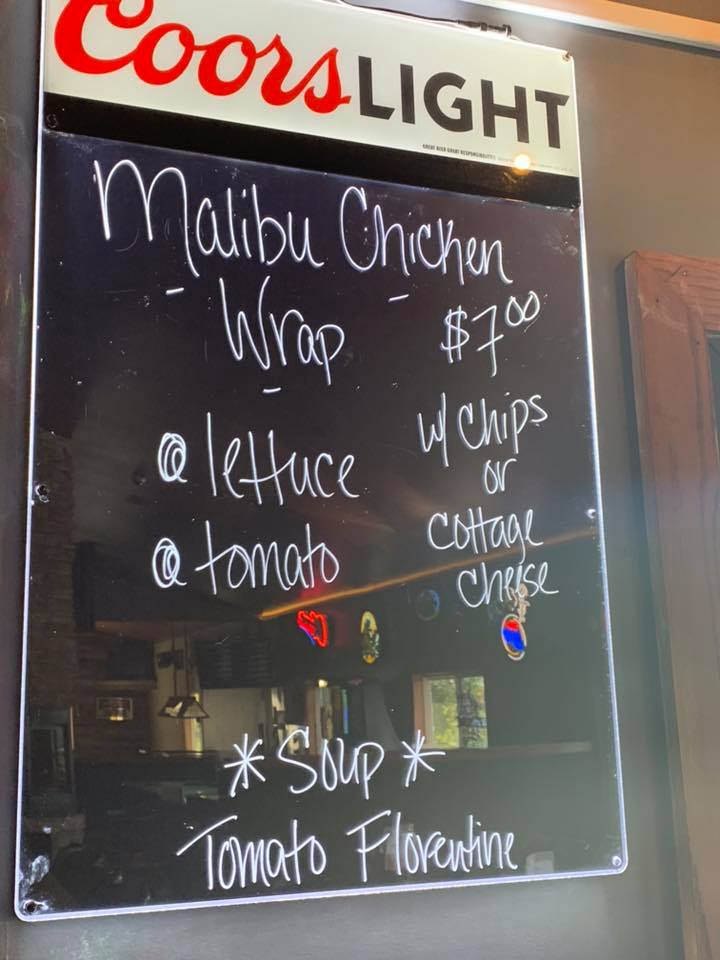 Coors LIGHT
GREAT BEER GREAT RESPONSIBILITY
Malibu Chicken
Wrap $7.00
lettuce
tomato
w/ chips
or
cottage
cheese
* Soup *
Tomato Florentine